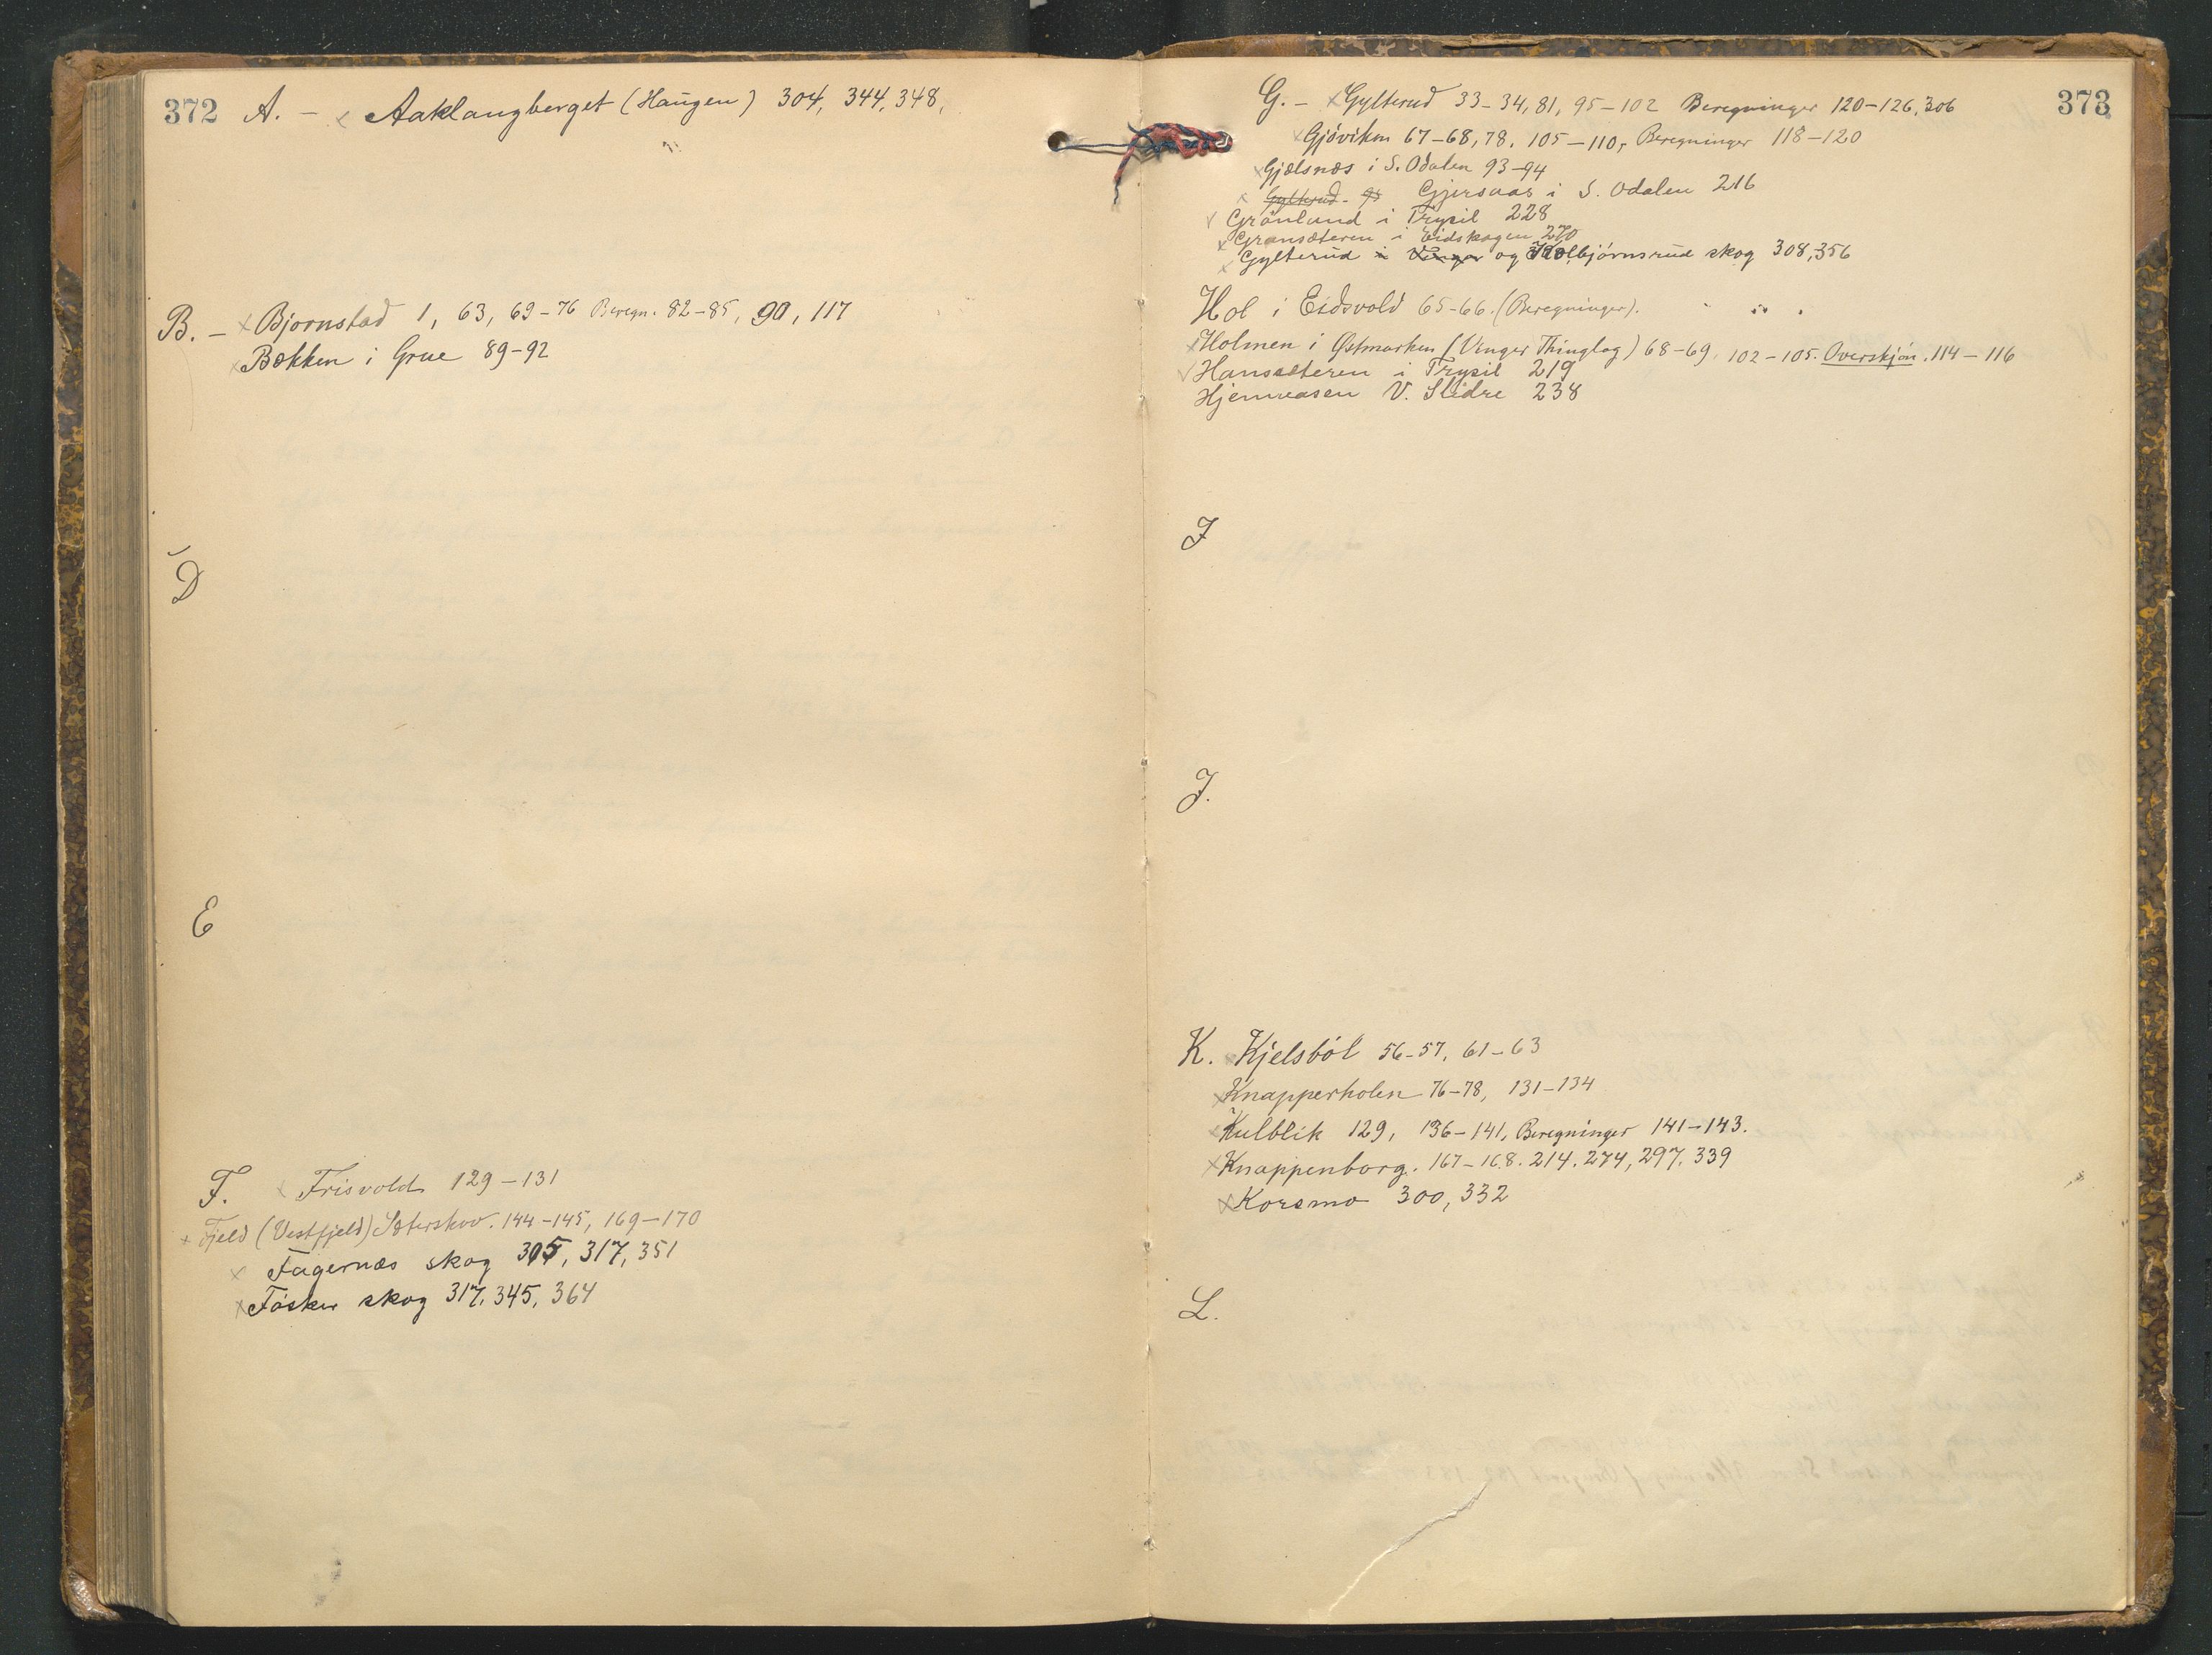 372 A. - x Aaklangberget (Haugen) 304, 344, 348,
B. - x Bjornstad 1, 63, 69-76 Beregn. 82-85, 90, 117
x Bækken i Grue 89-92
D
E
F. x Frisvold 129-131
x Fjeld (Vestfjeld) Sæterskov. 144-145, 169-170
x Fagernæs skog 305, 317, 351
x Fösker skog 317, 345, 364
373
G. - x Gylterud 33-34, 81, 95-102 Beregninger 120-126, 306
x Gjöviken 67-68, 78, 105-110, Beregninger 118-120
x Gjælsnæs i S. Odalen 93-94
x Gylterud - 95 Gjersaas i S. Odalen 216
v Grönland i Trysil 228
x Gransæteren i Eidskogen 270
x Gylterud i Vinger og Kolbjörnsrud skog 308, 356
Hol i Eidsvold 65-66. (Beregninger).
x Holmen i Østmarken (Vinger Thinglag) 68-69, 102-105. Overskjön. 114-116
v Hansæteren i Trysil 219
Hjemaasen V. Slidre 238
I
J.
K. x Kjelsböl 56-57, 61-63
x Knapperholen 76-78, 131-134
x Kulblik 129, 136-141, Beregninger 141-143.
x Knappenborg. 167-168. 214. 274, 297. 339
x Korsmo 300, 332
L.